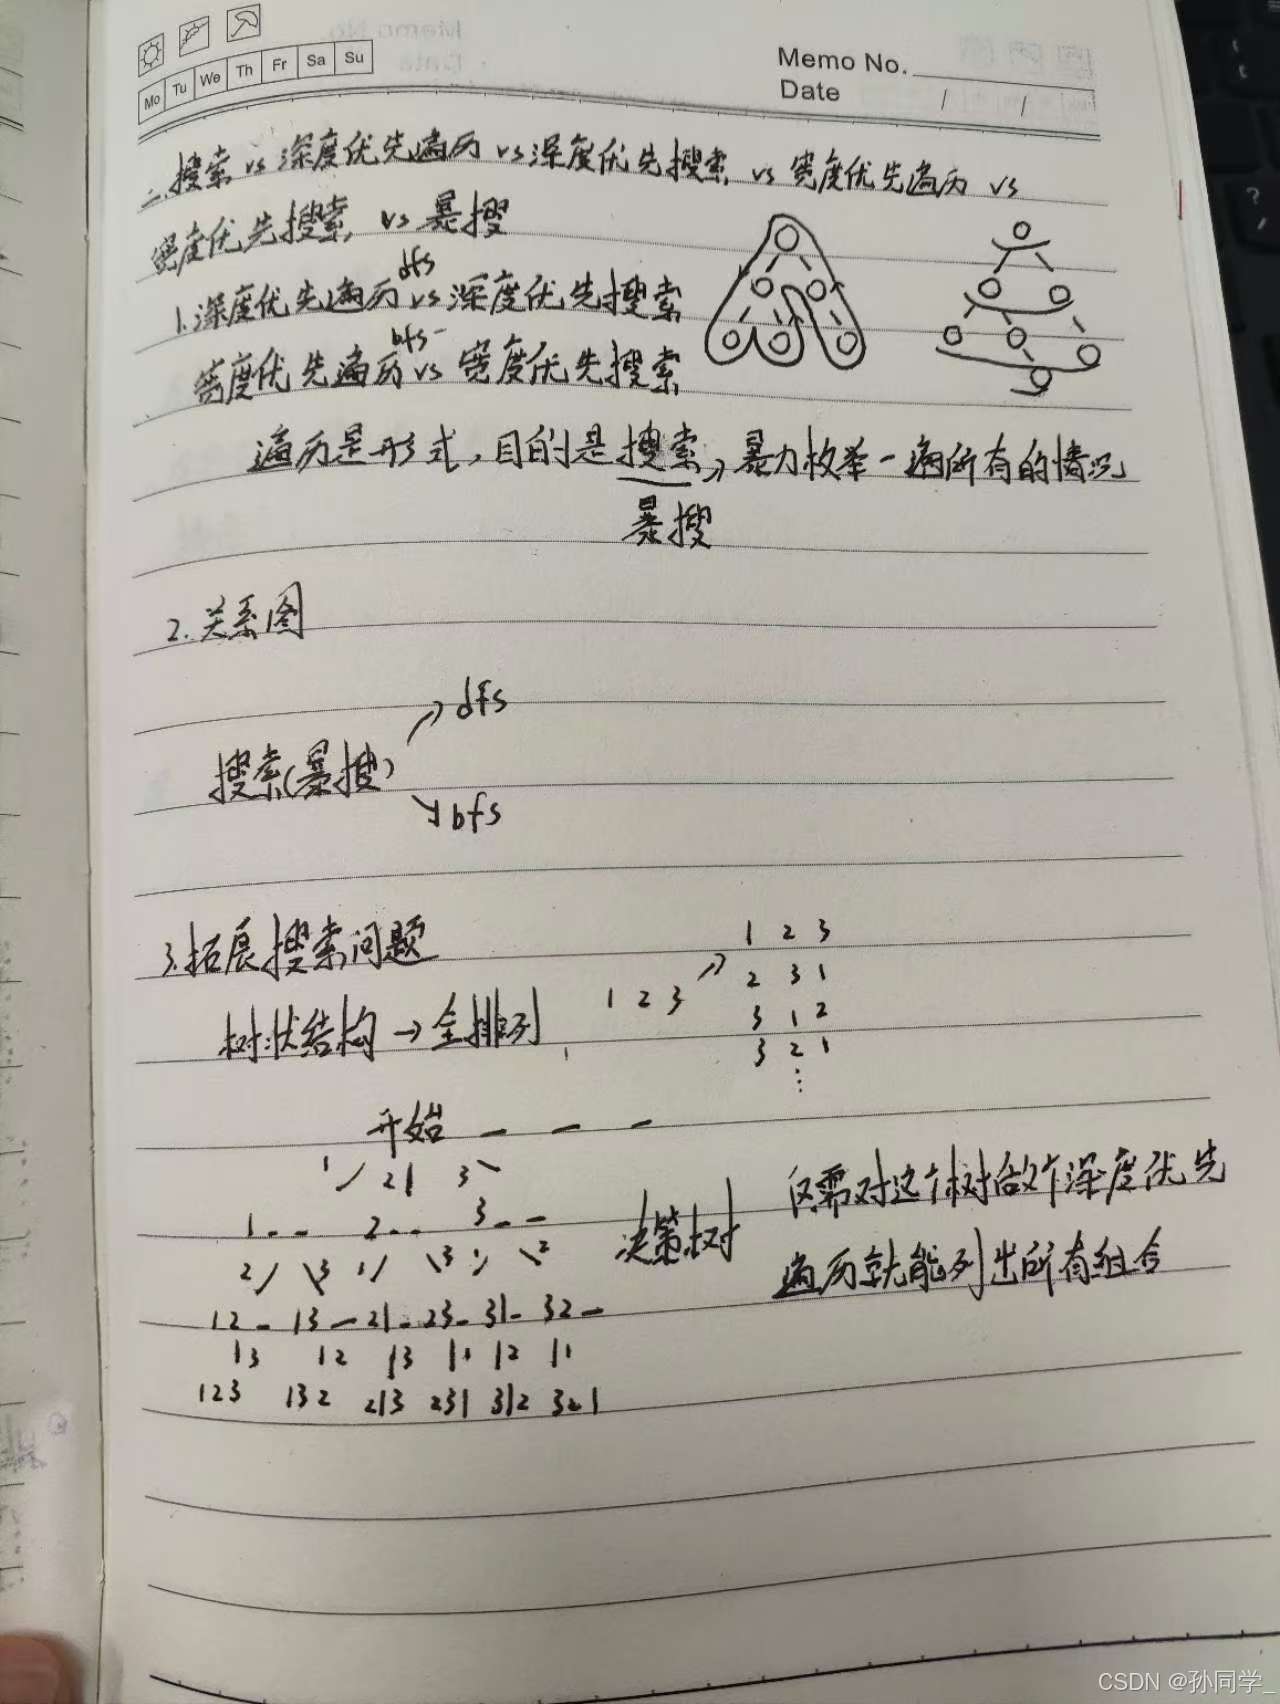 Mo Tu We Th Fr Sa Su
Memo No.
Date / /
二.搜索 vs 深度优先遍历 vs 深度优先搜索 vs 宽度优先遍历 vs
宽度优先搜索 vs 暴搜
dfs
1.深度优先遍历 vs 深度优先搜索
bfs
宽度优先遍历 vs 宽度优先搜索
遍历是形式,目的是搜索→暴力枚举一遍所有的情况
暴搜
2.关系图
dfs
搜索(暴搜)
bfs
3.拓展搜索问题
树状结构→全排列
1 2 3
1 2 3
2 3 1
3 1 2
3 2 1
⋮
开始 _ _ _
1 2 3
1 _ _ 2 _ _ 3 _ _
2 3 1 3 1 2
12_ 13_ 21_ 23_ 31_ 32_
3 2 3 1 2 1
123 132 213 231 312 321
决策树
仅需对这个树做个深度优先
遍历就能列出所有组合
CSDN @孙同学_